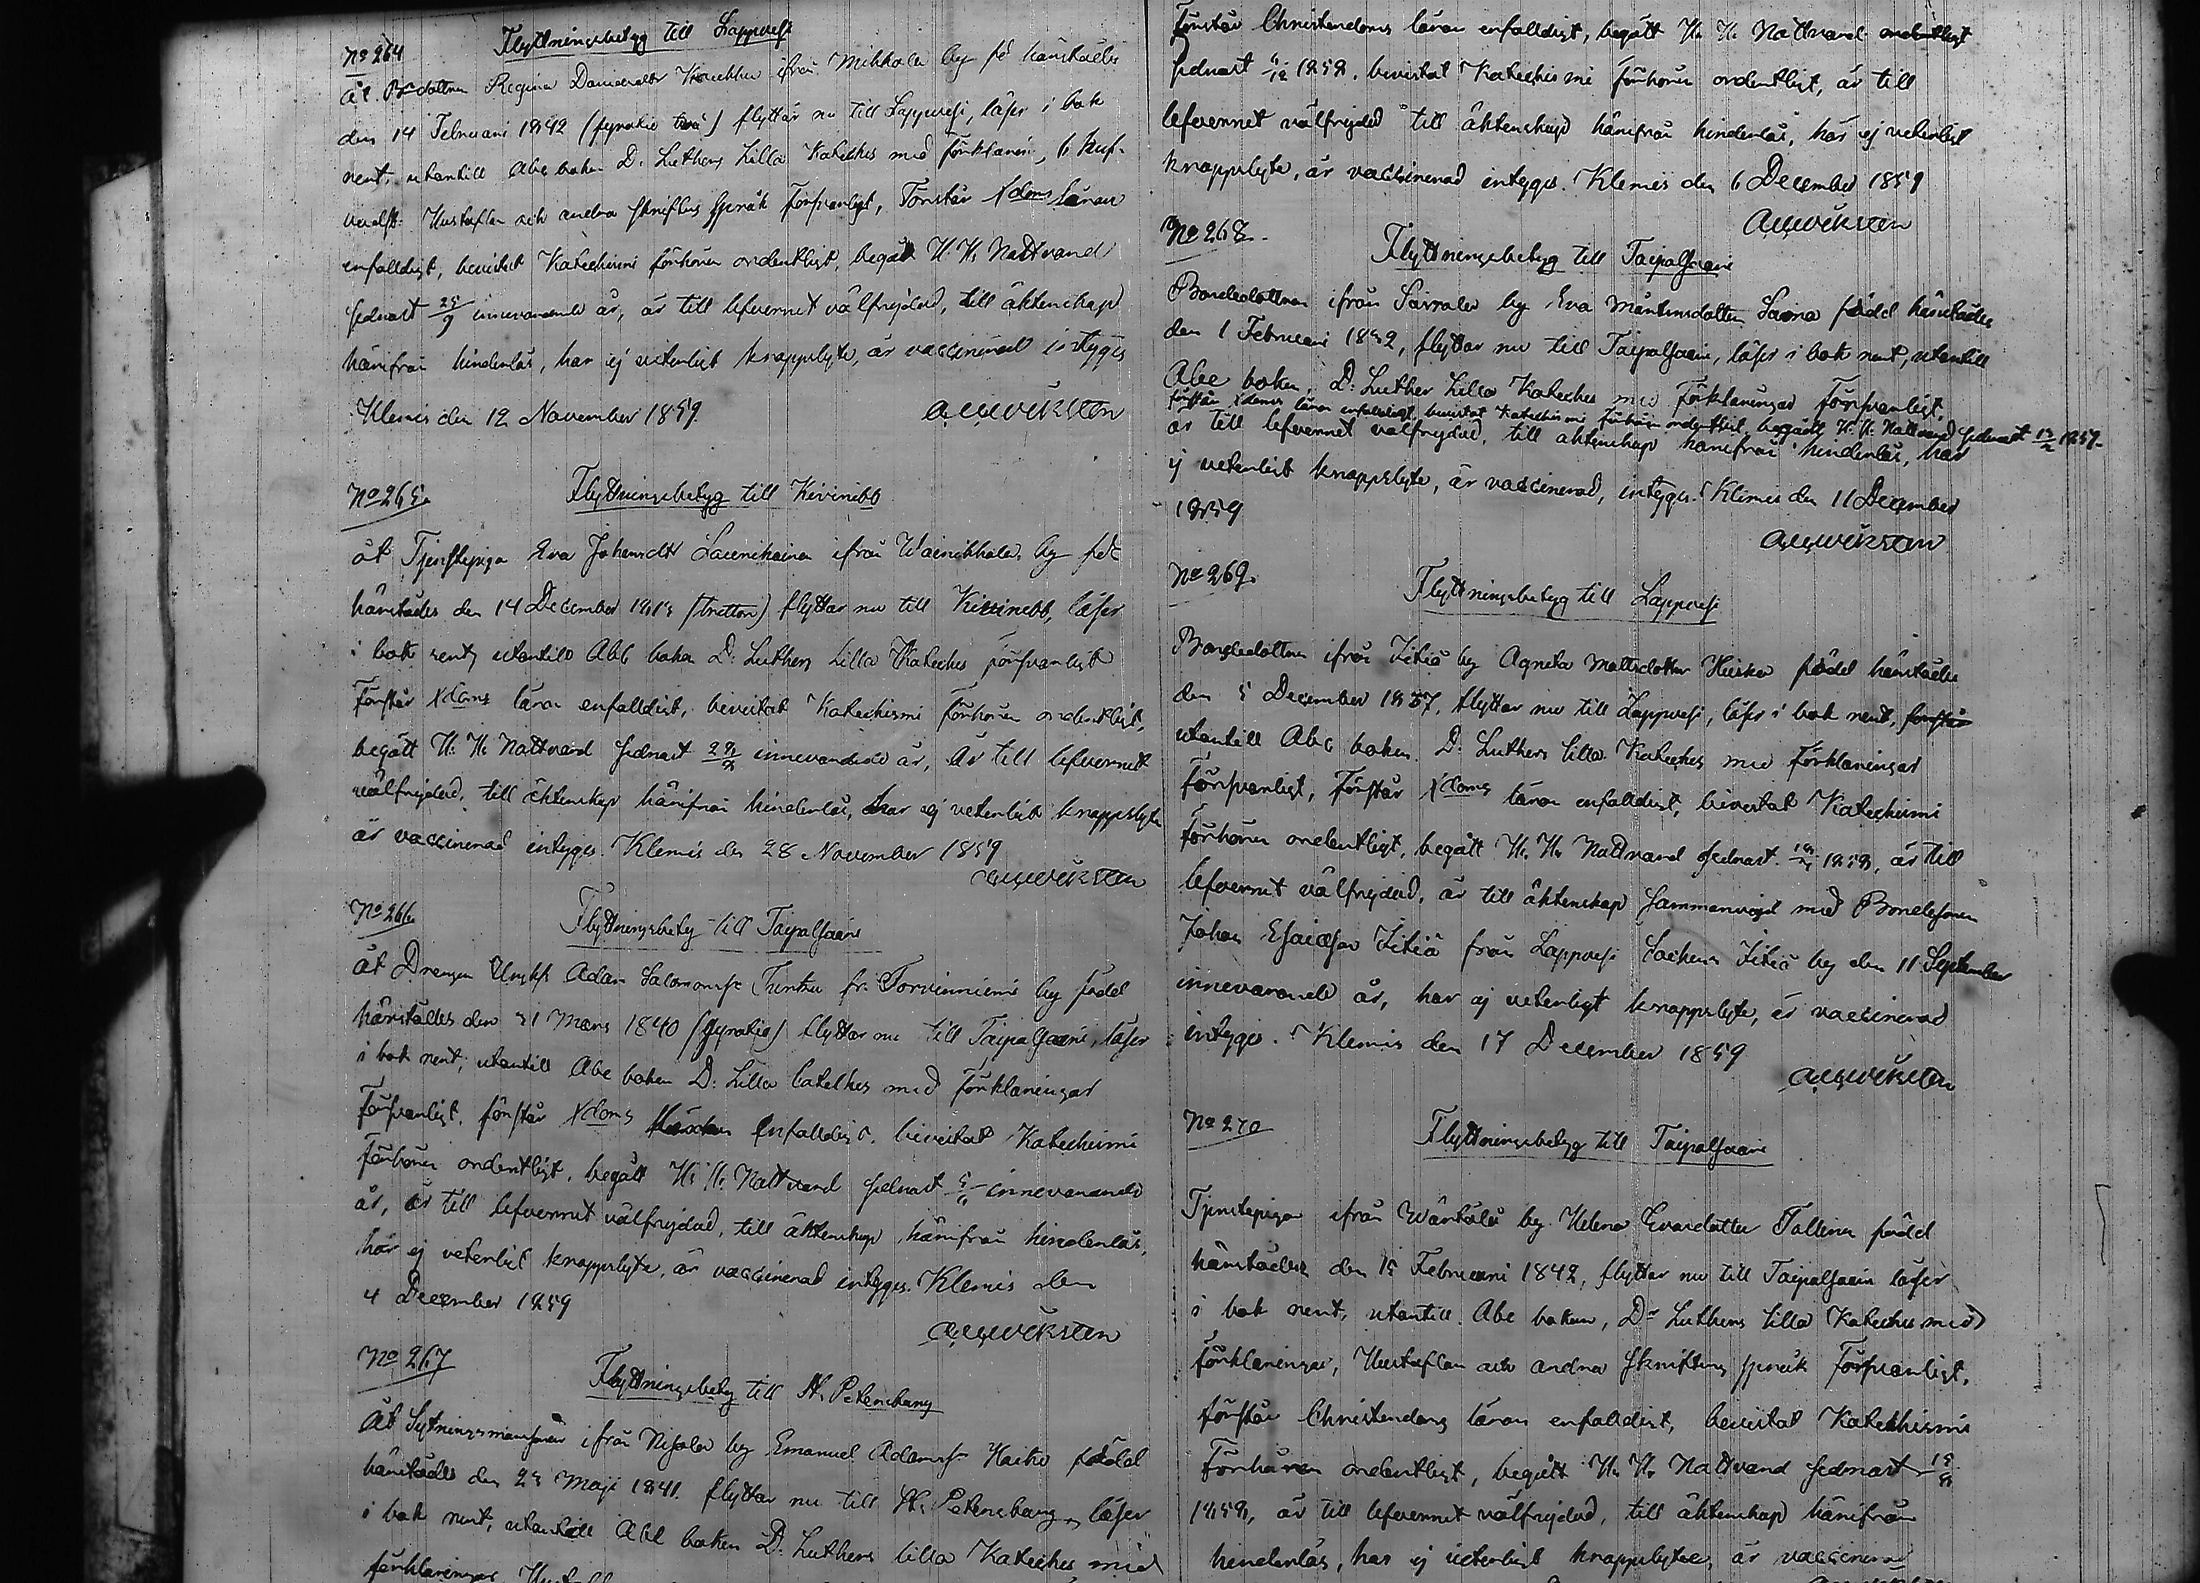 No 264 Flyttningsbetyg till Lappvesi
åt Bdottren Regina Danielsdtr ifrån Mikkola by fd härstädes
den 14 Februari 1842 (fyratio två) flyttar nu till Lappvesi, läser i bok
rent, utantill Abc boken D: Luthers Lilla Kateches med förklarin, 
Hustaflan och andra skriftens språk försvarligt, Förstår Xdoms läran
enfalldigt, bevistat Katechismi förhören ordentligt, begått H. H. Nattvard
sednast 25/9 innevarande år, är till lefvernet välfrejdad, till äktenskap
härifrån hinderlös, har ej veterligt knappslyte, är vaccinerad intygas
Klemis den 12 November 1859. A. G. Wikstén
No 265. Flyttningsbetyg till Kivinebb
åt Tjenstepiga Eva Johansdtr Laurikainen ifrån Wainikkala by fdd
härstädes den 14 December 1813 (tretton) flyttar nu till Kivinebb, läser
i bok rent, utantill Abc boken D: Luthers Lilla Kateches försvarligt
Förstår Xdoms läran enfalldigt, bevistat Katechismi förhören ordentligt,
begått H. H. Nattvard sednast innevarande år, är till lefvernet
välfrejdad, till äktenskap härifrån hinderlös, har ej veterligt knappslyte
är vaccinerad intygas. Klemis den 28 November 1859
A. G. Wikstén
No 266. Flyttningsbetyg till Taipalsaari
åt Drengen Adam Salomonss fr. Torvinniemi by född
härstädes den 31 Mars 1840 (fyratio) flyttar nu till Taipalsaari, läser
i bok rent, utantill Abc boken D: Lilla Cateches med förklaringar
försvarligt, förstår Xdoms enfalldigt, bevistat Katechismi
förhören ordentligt, begått H. H. Nattvard sednast innevarande
år, är till lefvernet välfrejdad, till äktenskap härifrån hinderlös,
har ej veterligt knappslyte, är vaccinerad intygas. Klemis den
4 December 1859
A. G. Wikstén
No 267 Flyttningsbetyg till St. Petersburg
åt Sytningsmansonen ifrån by Emanuel Adamss född
härstädes den 23 Maji 1841. flyttar nu till St. Petersburg, läser
i bok rent, utantill Abc boken D. Luthers lilla Kateches med
förklaringar,
Förstår Christendoms läran enfalldigt, begått H. H. Nattvard ordentligt
sednast 1858, bevistat Katechismi förhören ordentligt, är till
lefvernet välfrejdad till äktenskap härifrån hinderlös, har ej veterligt
knappslyte, är vaccinerad intygas. Klemis den 6 December 1859
A. G. Wikstén
No 268. Flyttningsbetyg till Taipalsaari
Bondedottren ifrån by Eva Mårtensdotter född härstädes
den 1 Februari 1832, flyttar nu till Taipalsaari, läser i bok rent, utantill
Abc boken, D: Luther Lilla Kateches med Förklaringar Försvarligt,
förstår Xdoms läran enfalldigt, bevistat Katechismi förhören ordentligt, begått H. H. Nattvard sednast 1859.
är till lefvernet välfrejdad, till äktenskap härifrån hinderlös, har
ej veterligt knappslyte, är vaccinerad, intygas. Klemis den 11 December
1859
A. G. Wikstén
No 269. Flyttningsbetyg till Lappvesi
Bondedottren ifrån Jitiä by Agneta Mattsdotter född härstädes
den 5 December 1837, flyttar nu till Lappvesi, läser i bok rent, förstår
utantill Abc boken. D: Luthers lilla Kateches med Förklaringar
Försvarligt, Förstår Xdoms läran enfalldigt, bevistat Katechismi
förhören ordentligt, begått H. H. Nattvard sednast 1858, är till
lefvernet välfrejdad, är till äktenskap sammanvigd med Bondesonen
Johan Esaiasson Jitiä från Lappvesi Sochens Jitiä by den 11 September
innevarande år, har ej veterligt knappslyte, är vaccinerad
intygas. Klemis den 17 December 1859
A. G. Wikstén
No 270 Flyttningsbetyg till Taipalsaari
Tjenstepigan ifrån Wärtälä by Helena Evardotter född
härstädes den 15 Februari 1842, flyttar nu till Taipalsaari läser
i bok rent, utantill Abc boken, Dr Luthers lilla Kateches med
förklaringar, Hustaflan och andra skriftens språk Försvarligt,
förstår Christendoms läran enfalldigt, bevistat Katechismi
Förhören ordentligt, begått H. H. Nattvard sednast
1858, är till lefvernet välfrejdad, till äktenskap härifrån
hinderlös, har ej veterligt knappslyte, är vaccinerad